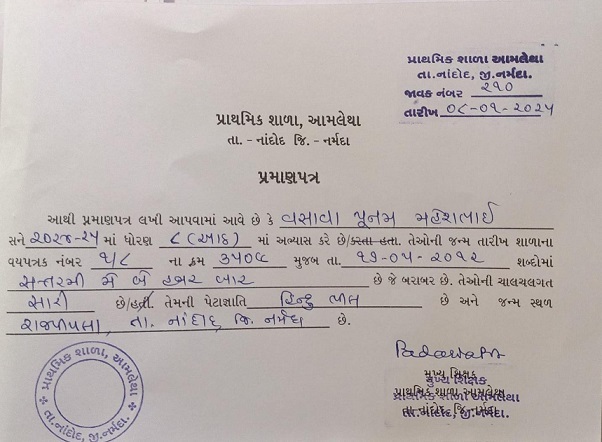 પ્રાથમિક શાળા આમલેથા
તા.નાંદોદ, જી.નર્મદા.
જાવક નંબર ૨૧૦
તારીખ ૦૮-૦૧-૨૦૨૫
પ્રાથમિક શાળા, આમલેથા
તા. - નાંદોદ જિ. - નર્મદા
પ્રમાણપત્ર
આથી પ્રમાણપત્ર લખી આપવામાં આવે છે કે વસાવા પૂનમ મહેશભાઈ
સને ૨૦૨૪-૨૫ માં ધોરણ ૮ (આઠ) માં અભ્યાસ કરે છે/કરતા હતા. તેઓની જન્મ તારીખ શાળાના
વયપત્રક નંબર ૧/૮ ના ક્રમ ૩૫૦૯ મુજબ તા. ૧૭-૦૫-૨૦૧૨ શબ્દોમાં
સત્તરમી મે બે હજાર બાર છે જે બરાબર છે. તેઓની ચાલચલગત
સારી છે/હતી. તેમની પેટાજ્ઞાતિ હિન્દુ ભીલ છે અને જન્મ સ્થળ
રાજપીપલા, તા. નાંદોદ જિ. નર્મદા છે.
મુખ્ય શિક્ષક
મુખ્ય શિક્ષક
પ્રાથમિક શાળા આમલેથા
પ્રાથમિક શાળા આમલેથા
તા-નાંદોદ, જિ-નર્મદા
તા.નાંદોદ, જી.નર્મદા.
પ્રાથમિક શાળા, આમલેથા
તા.નાંદોદ, જી.નર્મદા.